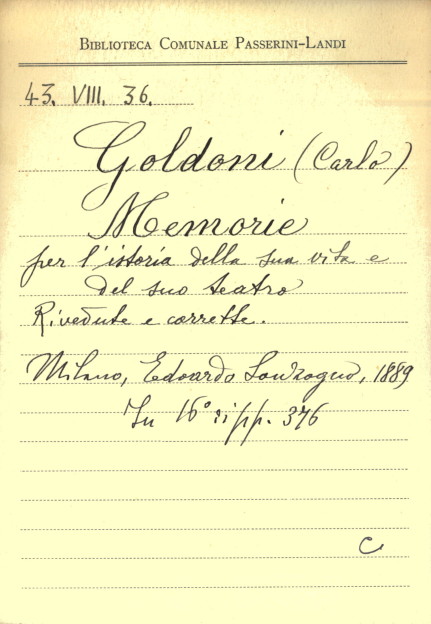 BIBLIOTECA COMUNALE PASSERINI-LANDI
43. VIII. 36.
Goldoni (Carlo)
Memorie
per l'istoria della sua vita e
del suo teatro
Rivedute e corrette.
Milano, Edoardo Sonzogno, 1889
In 16° di pp. 376
C